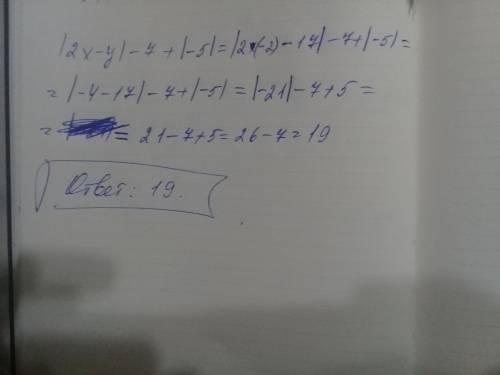 |2x-y|-7+|-5|=|2·(-2)-17|-7+|-5|=
=|-4-17|-7+|-5|=|-21|-7+5=
= = 21-7+5=26-7=19
Ответ: 19.